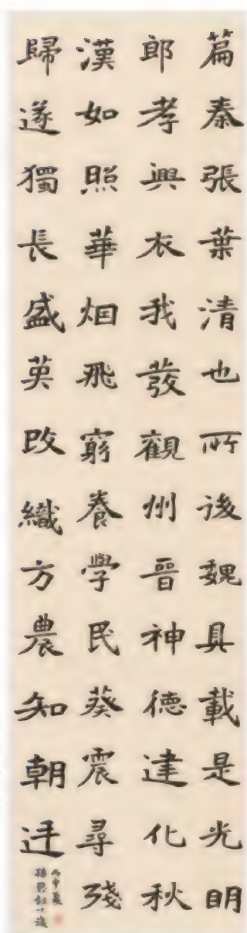 篇秦張葉清也所後魏具載是光明
郎孝興衣我發觀州晉神德建化秋
漢如照華烟飛窮養學民葵震尋殘
歸遂獨長盛英改織方農知朝迁